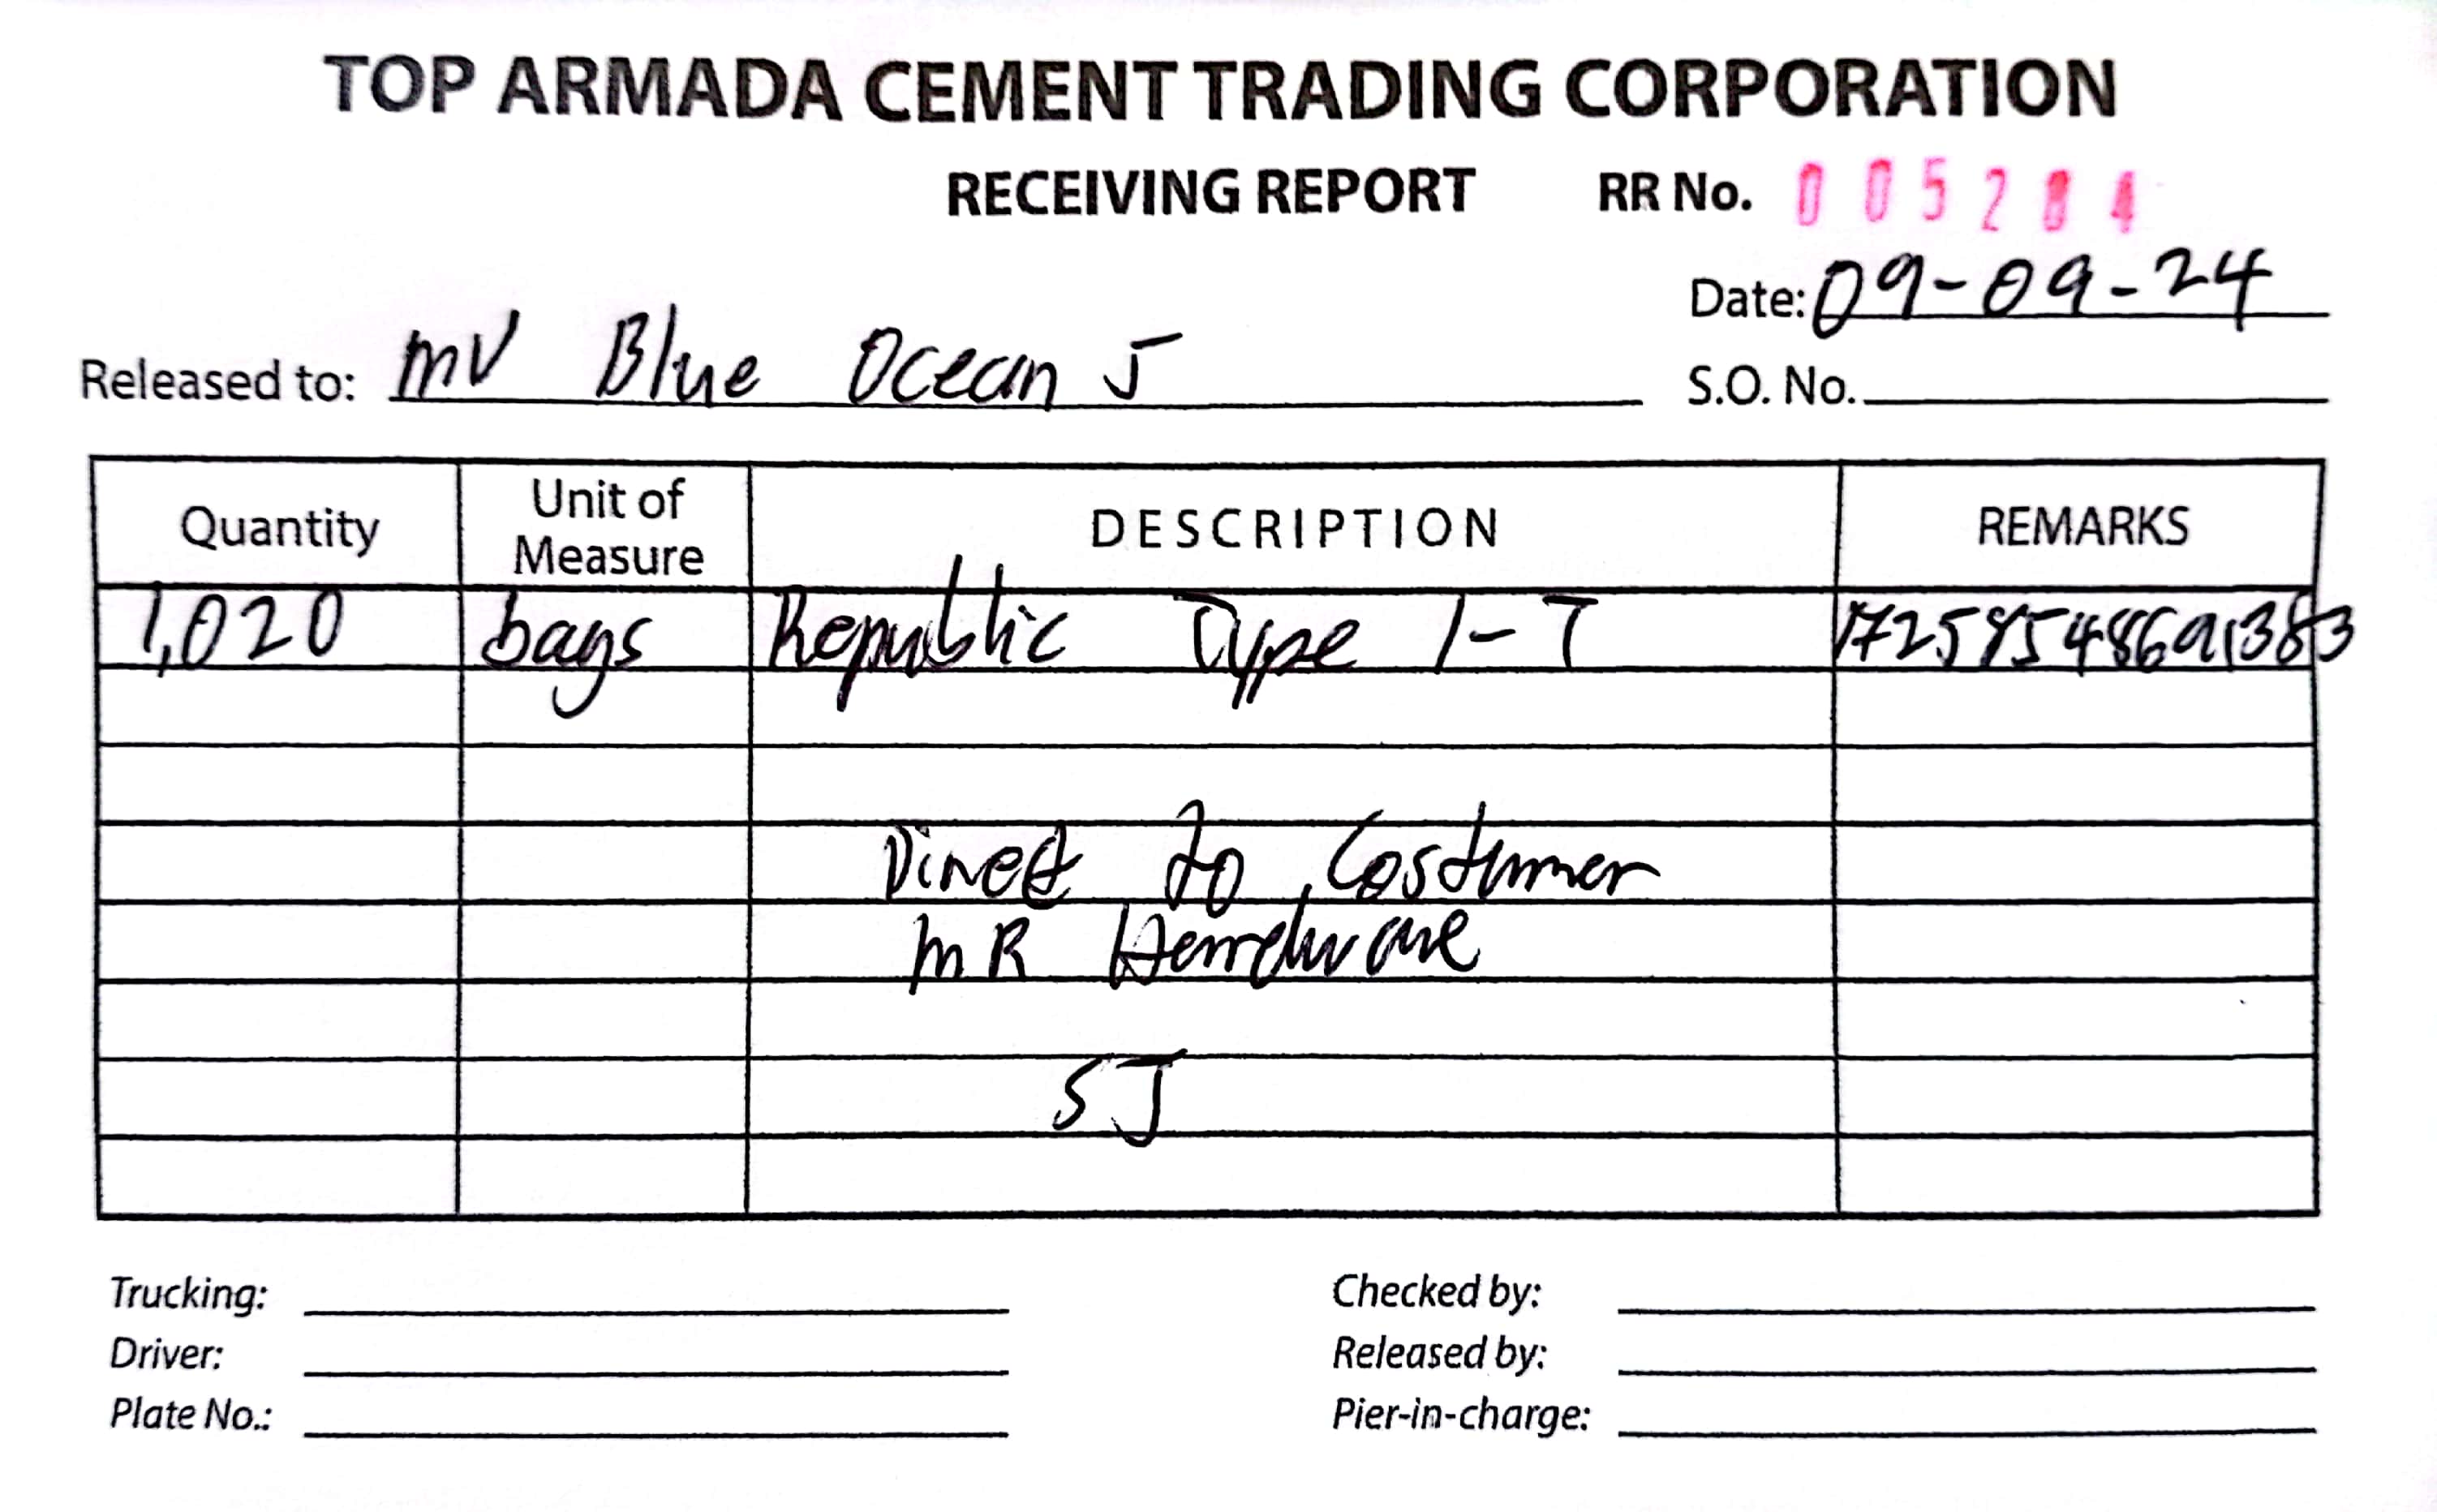 TOP ARMADA CEMENT TRADING CORPORATION
RECEIVING REPORT RR No. 005284
Date: 09-09-24
Released to: MV Blue Ocean 5
S.O. No.
Quantity Unit of Measure DESCRIPTION REMARKS
1,020 bags Republic Type 1-T
Direct to Costumer
MR Hardware
SJ
Trucking: Checked by:
Driver: Released by:
Plate No.: Pier-in-charge: